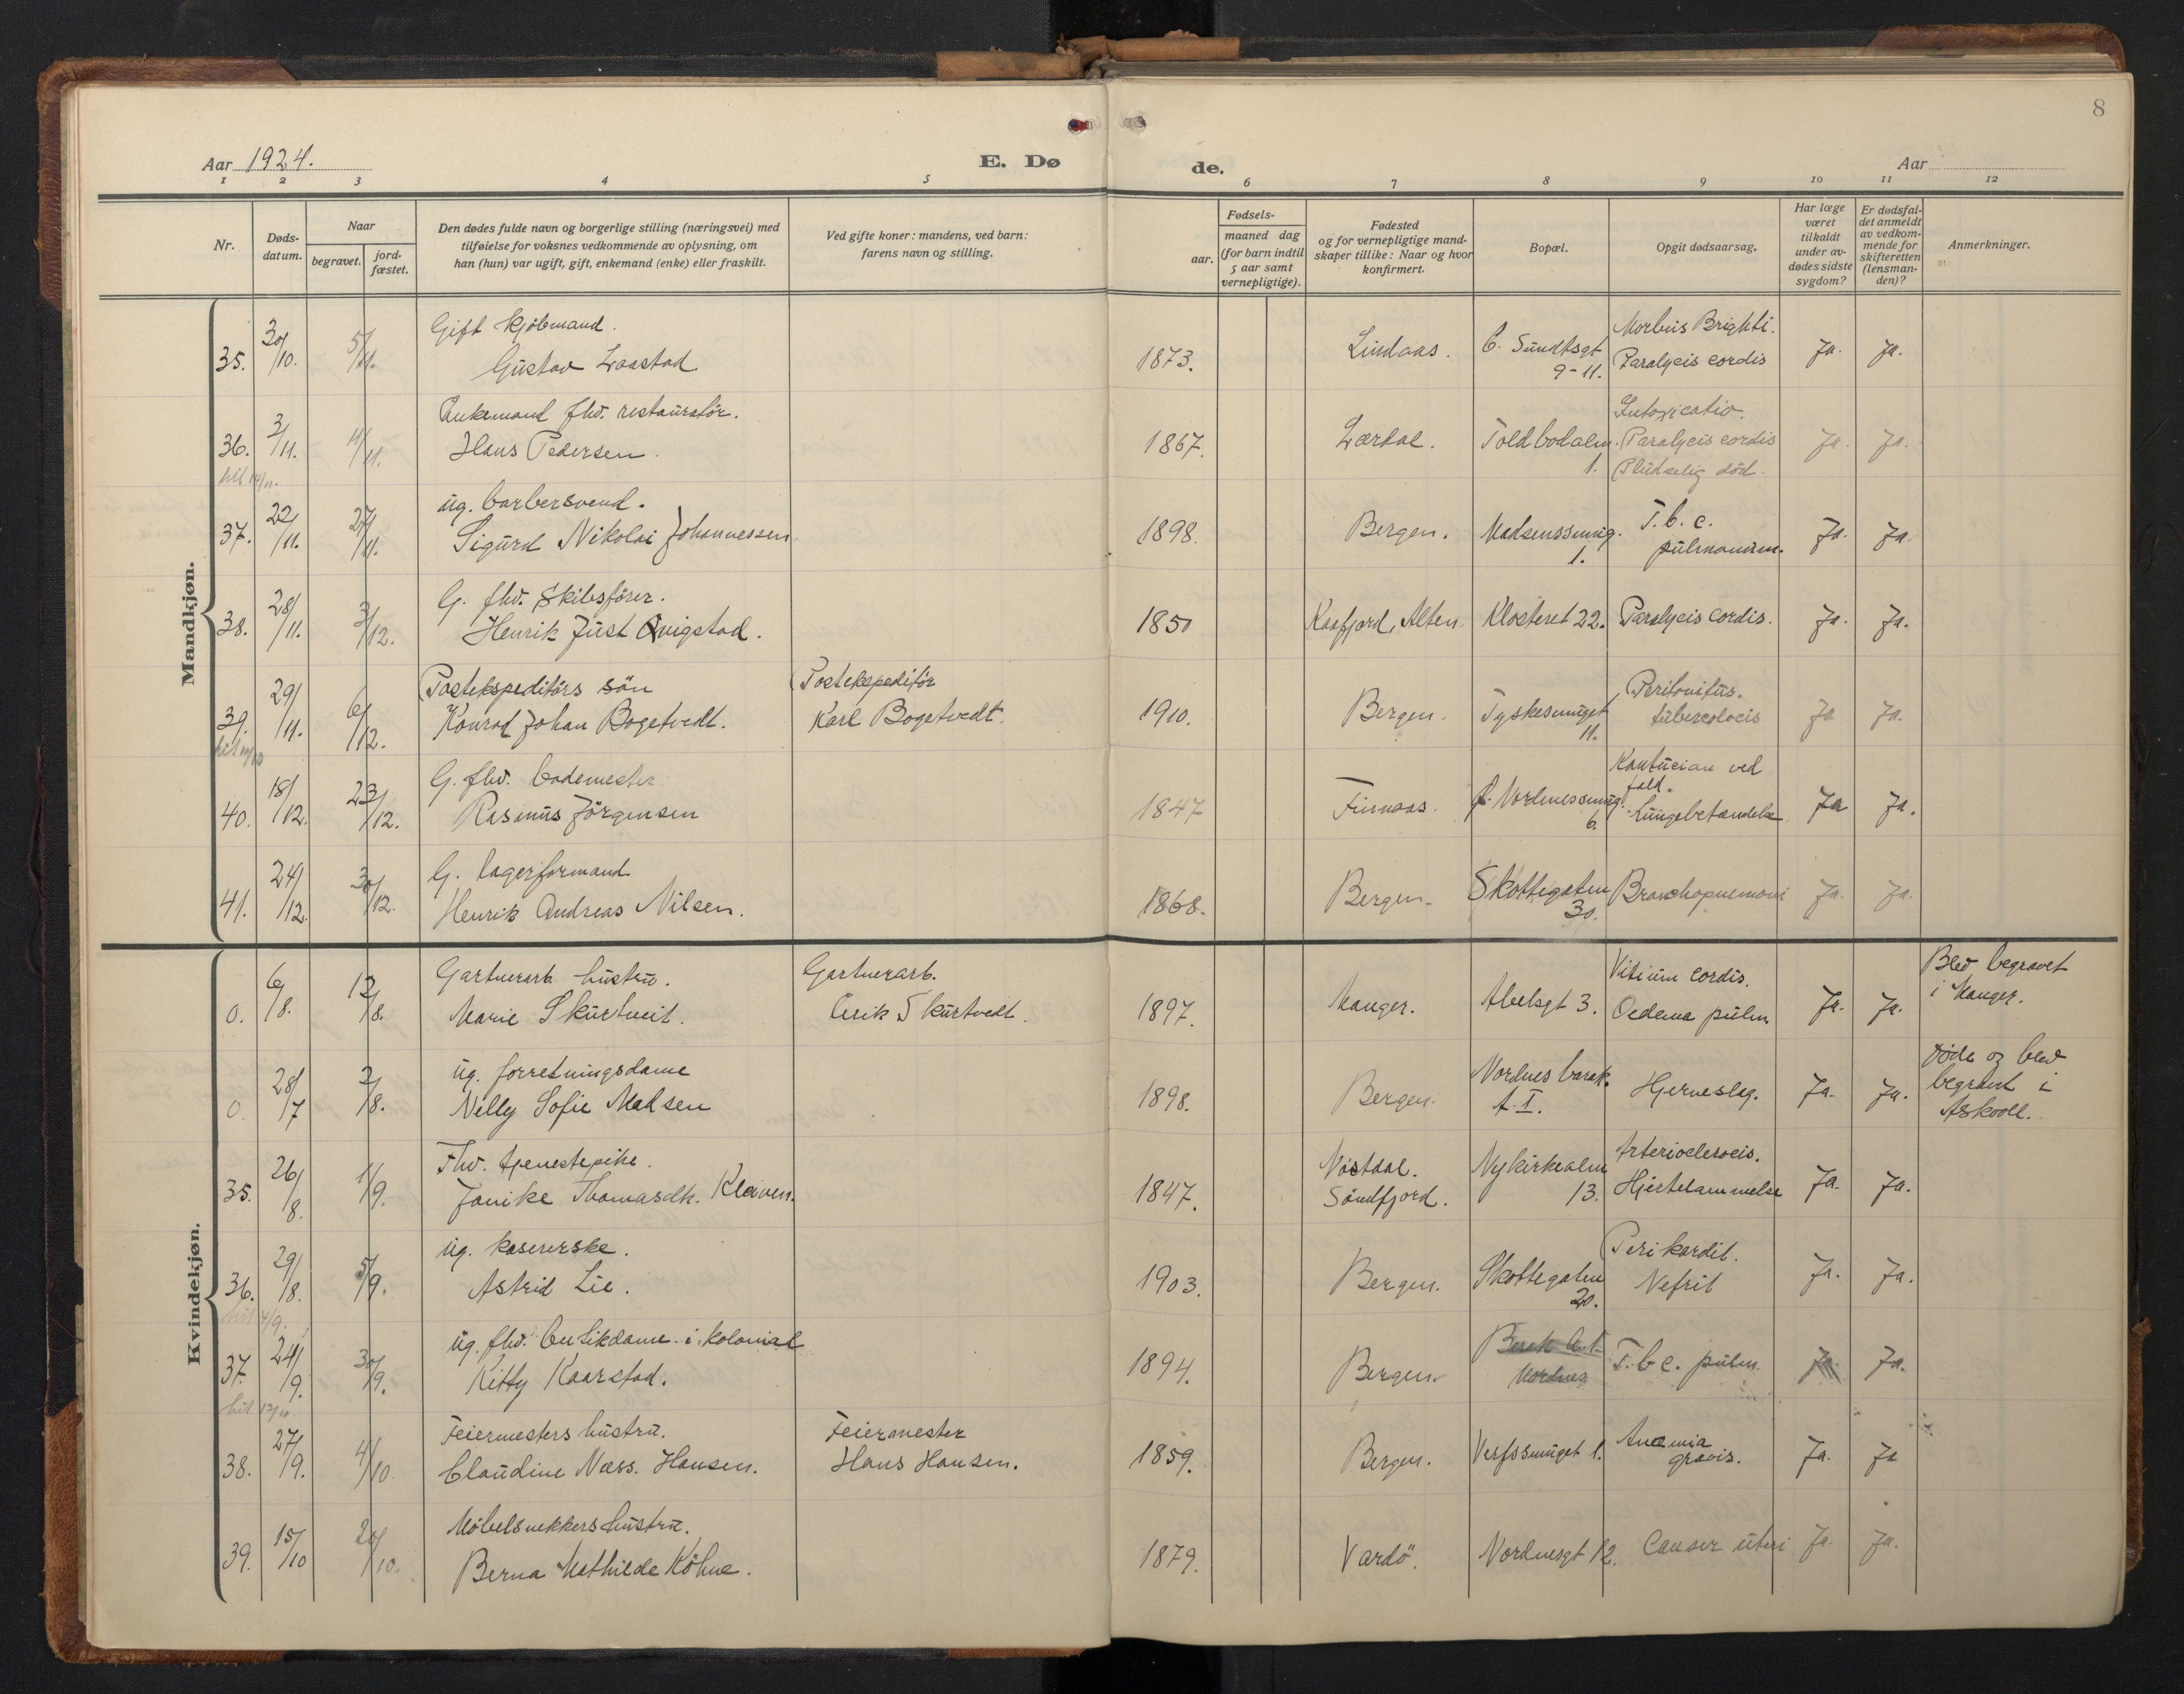 8
Aar 1924.
E. Dø
de.
Aar
1 2 3 4 5 6 7 8 9 10 11 12
Nr.
Døds-
datum.
Naar
begravet.
jord-
fæstet.
Den dødes fulde navn og borgerlige stilling (næringsvei) med
tilføielse for voksnes vedkommende av oplysning, om
han (hun) var ugift, gift, enkemand (enke) eller fraskilt.
Ved gifte koner: mandens, ved barn:
farens navn og stilling.
Fødsels-
aar.
maaned dag
(for barn indtil
5 aar samt
vernepligtige).
Fødested
og for vernepligtige mand-
skaper tillike: Naar og hvor
konfirmert.
Bopæl.
Opgit dødsaarsag.
Har læge
været
tilkaldt
under av-
dødes sidste
sygdom?
Er dødsfal-
det anmeldt
av vedkom-
mende for
skifteretten
(lensman-
den)?
Anmerkninger.
Mandkjøn.
35. 30/10. 5/11.
Gift kjøbmand.
Gustav Laastad
1873. Lindaas. C. Sundtsgt
9-11.
Morbus Brighti.
Paralysis cordis
Ja. Ja.
36. 3/11. 11/11.
Enkemand fhv. restauratør.
Hans Pedersen.
1867. Lærdal. Toldbodalm.
1.
Intoxicatio.
Paralysis cordis
Pludselig død.
Ja. Ja.
37. 22/11. 27/11.
ug. barbersvend.
Sigurd Nikolai Johannessen.
1898. Bergen. Madsenssmug.
1.
T. b. c.
pulmonum.
Ja. Ja.
38. 28/11. 3/12.
G. fhv. skibsfører.
Henrik Just Qvigstad.
1850 Kaafjord, Alten. Klosteret 22. Paralysis cordis. Ja. Ja.
39. 29/11. 6/12.
Postekspeditørs søn
Konrad Johan Bogetvedt.
Postekspeditør
Karl Bogetvedt.
1910. Bergen. Tyskesmuget
11.
Peritonitus.
tuberculocis
Ja Ja.
40. 18/12. 23/12.
G. fhv. bademester
Rasmus Jörgensen
1847 Finnaas. Nordnessmug.
6.
Kontusion ved
fald.
Lungebetændelse
Ja Ja.
41. 24/12. 30/12.
G. lagerformand.
Henrik Andreas Nilsen.
1868. Bergen. Skottegaten
30.
Bronchopnemoni
Ja. Ja.
Kvindekjøn.
0. 6/8. 12/8.
Gartnerarb. hustru.
Marie Skurtveit.
Gartnerarb.
Erik Skurtvedt.
1897. Manger. Abelsgt 3.
Vitium cordis.
Oedema pulm.
Ja. Ja.
Blev begravet
i Manger.
0. 28/7 2/8.
ug. forretningsdame
Nelly Sofie Madsen
1898. Bergen. Nordnes barak.
A. I.
Hjerneslag. Ja. Ja.
Døde og blev
begravet i
Askvoll.
35. 26/8. 1/9.
Fhv. tjenestepike.
Janike Thomasdtr. Kleiven.
1847. Nøstdal.
Söndfjord.
Nykirkealm
13.
Arteriosclerosis.
Hjertelammelse
Ja. Ja.
36. 29/8. 5/9.
ug. kasererske.
Astrid Lie.
1903. Bergen. Skottegaten
20.
Perikardit.
Nefrit
Ja. Ja.
37. 24/9. 30/9.
ug. fhv. butikdame i kolonial
Kitty Kaarstad.
1894. Bergen.
Barak A. I.
Nordnes
T. b c. pulm. Ja. Ja.
38. 27/9. 4/10.
Feiermesters hustru.
Claudine Næss. Hansen.
Feiermester
Hans Hansen.
1859. Bergen. Verfssmuget 1.
Anæmia
gravis.
Ja. Ja
39. 15/10 20/10.
Møbelsnekkers hustru.
Berna Mathilde Köhne.
1879. Vardö. Nordnesgt 12. Canser uteri Ja. Ja.